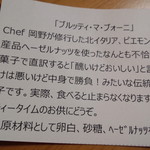 「ブルッティ・マ・ブォーニ」
Chef 岡野が修行した北イタリア、ピエモン
産品ヘーゼルナッツを使ったなんとも不恰
菓子で直訳すると「醜いけどおいしい」と言
けは悪いけど中身で勝負！みたいな伝統
です。実際、食べると止まらなくなります
ィータイムのお供にどうぞ。
原材料として卵白、砂糖、ヘーゼルナッツ